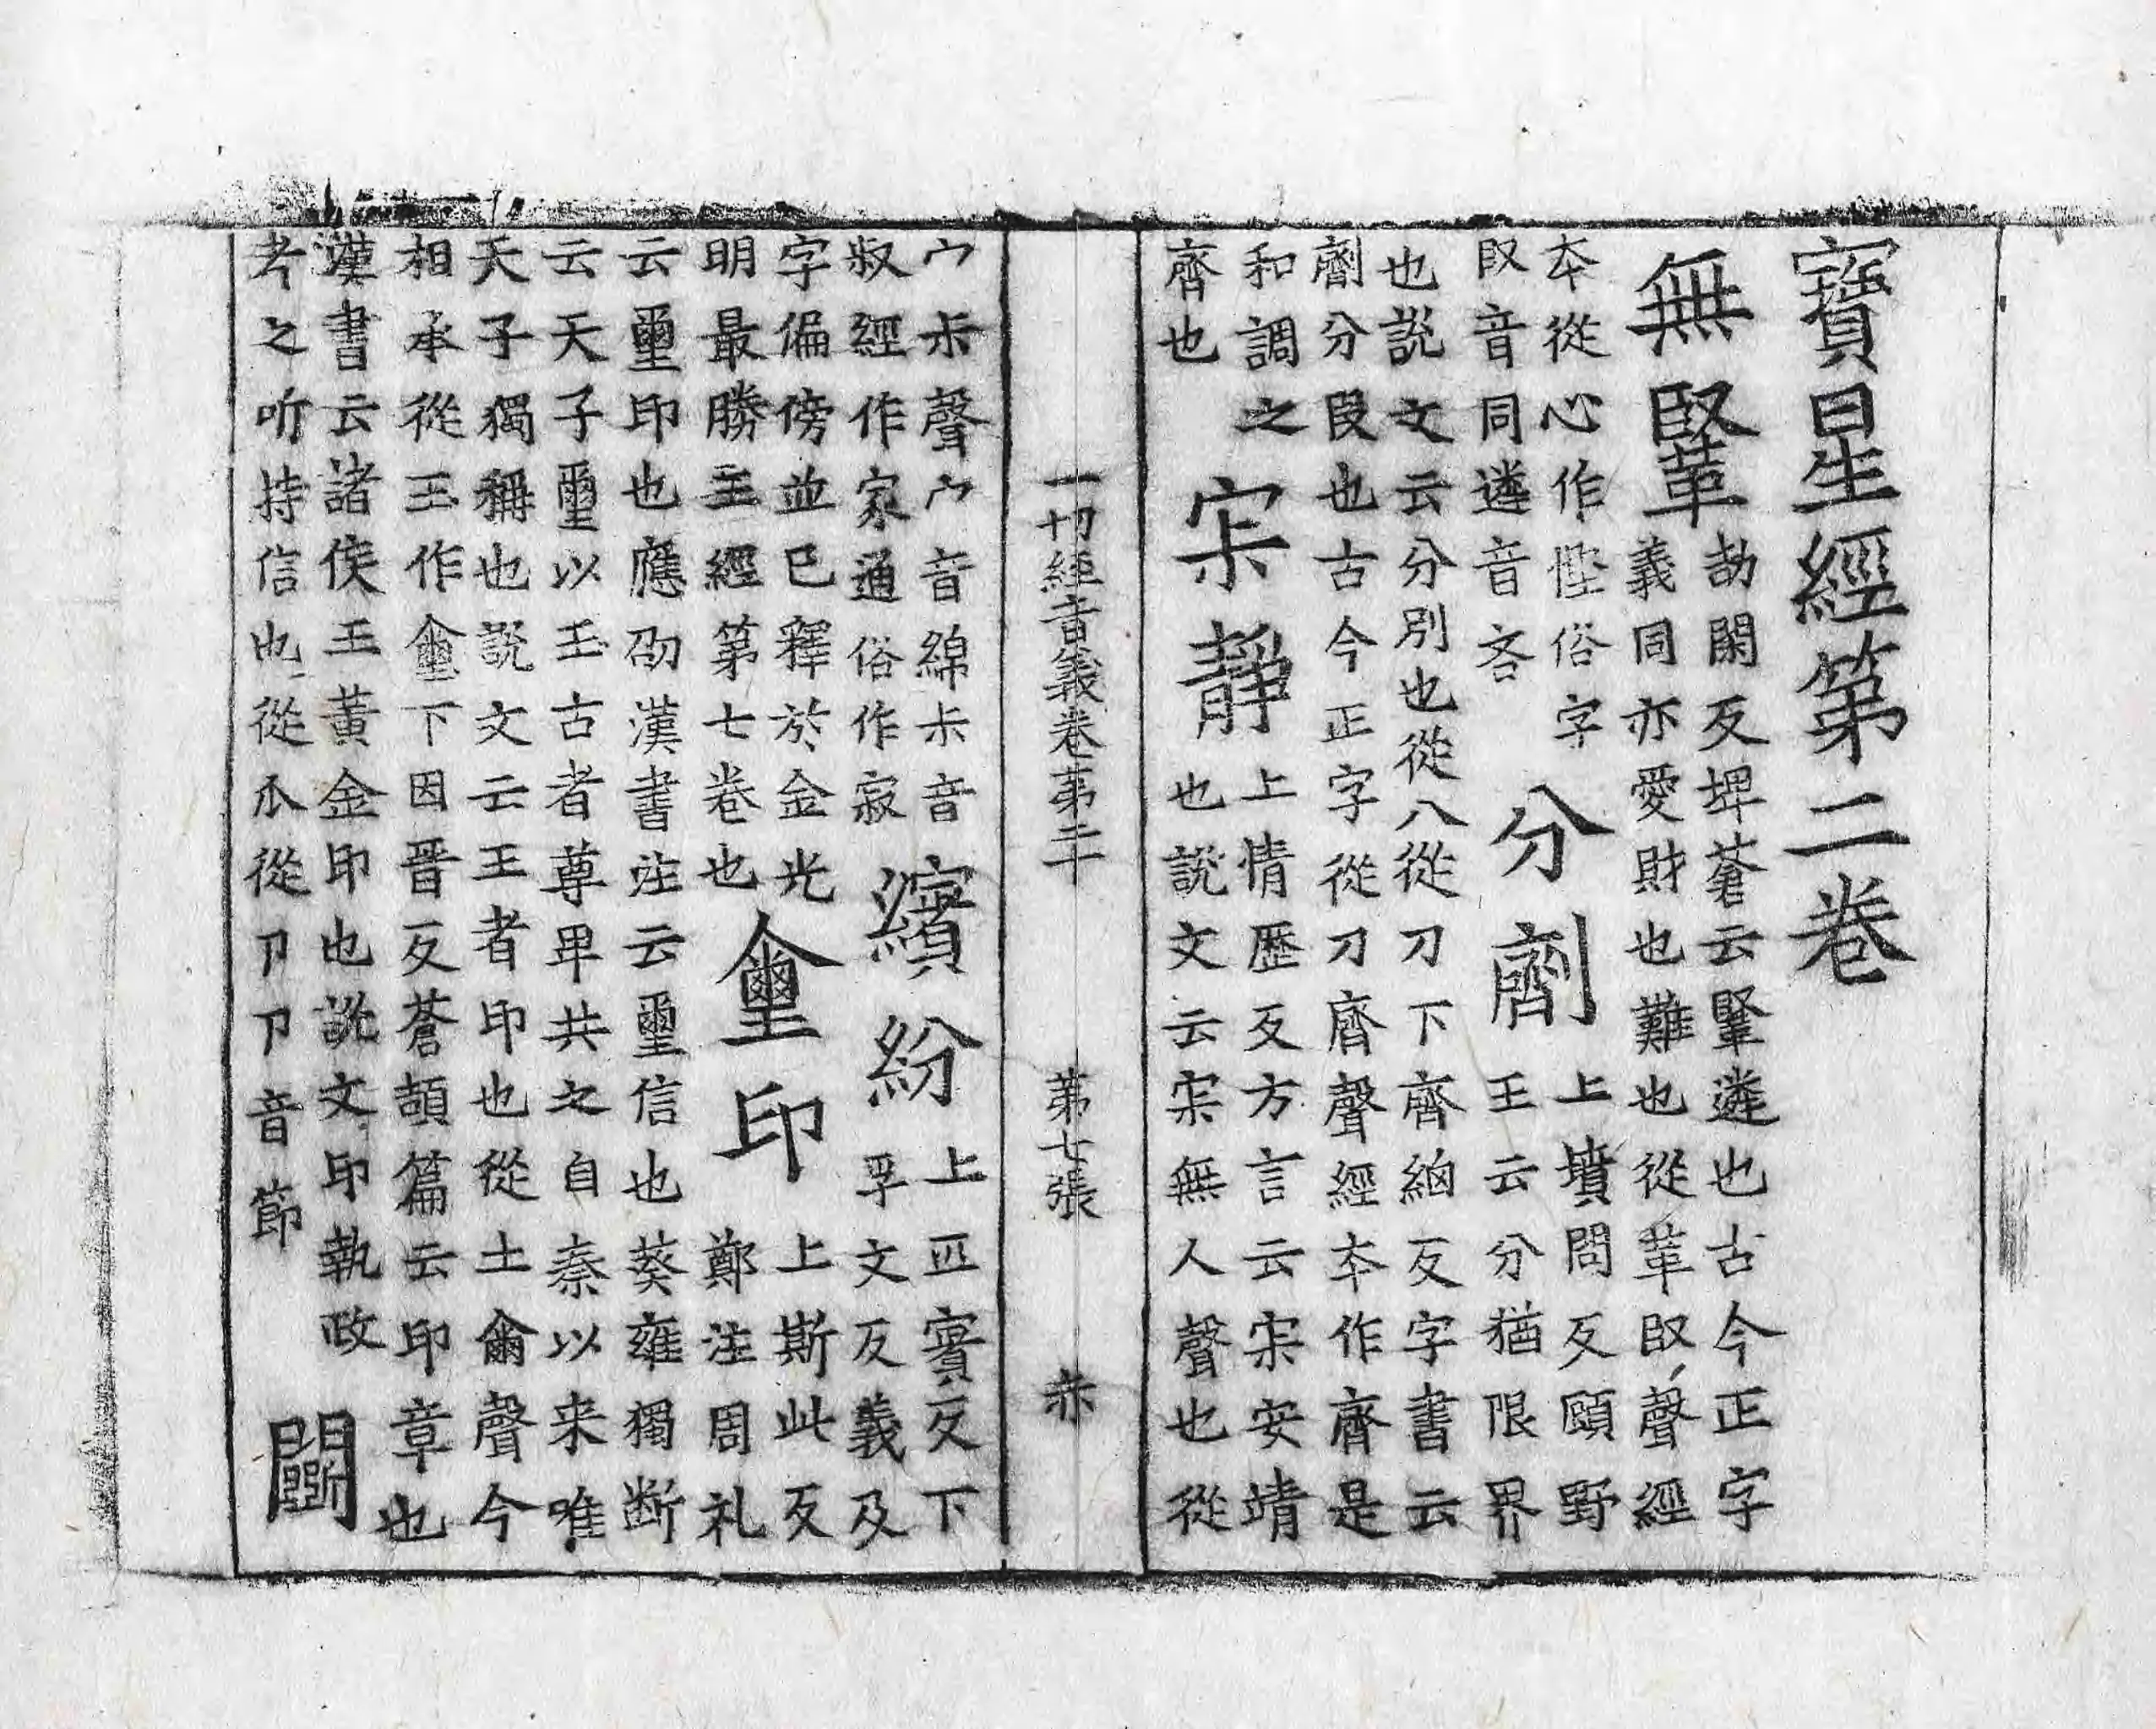 寶星經第二卷
無䩤
劫閑反埤蒼云䩤遴也古今正字
義同亦愛財也難也從革臤聲經
夲從心作慳俗字
臤音同遴音吝
分劑
上墳問反顧野
王云分猶限界
也說文云分別也從八從刀下齊細反字書云
劑分段也古今正字從刀齊聲經夲作齊是
和調之
齊也
宋靜
上情歷反方言云宋安靖
也說文云宋無人聲也從
宀尗聲宀音綿尗音
叔經作家通俗作寂
繽紛
上匹賓反下
孚文反義及
字偏傍並已釋於金光
明最勝王經第七卷也
璽印
上斯此反
鄭注周礼
云璽印也應劭漢書注云璽信也葵雍獨断
云天子璽以玉古者尊卑共之自秦以来唯
天子獨稱也說文云王者印也從土爾聲今
相承從玉作璽下因晉反蒼頡篇云印章也
漢書云諸侯王黃金印也說文印執政
考之所持信也從爪從卩卩音節
鬭
一切經音義卷第二十
第七張
赤